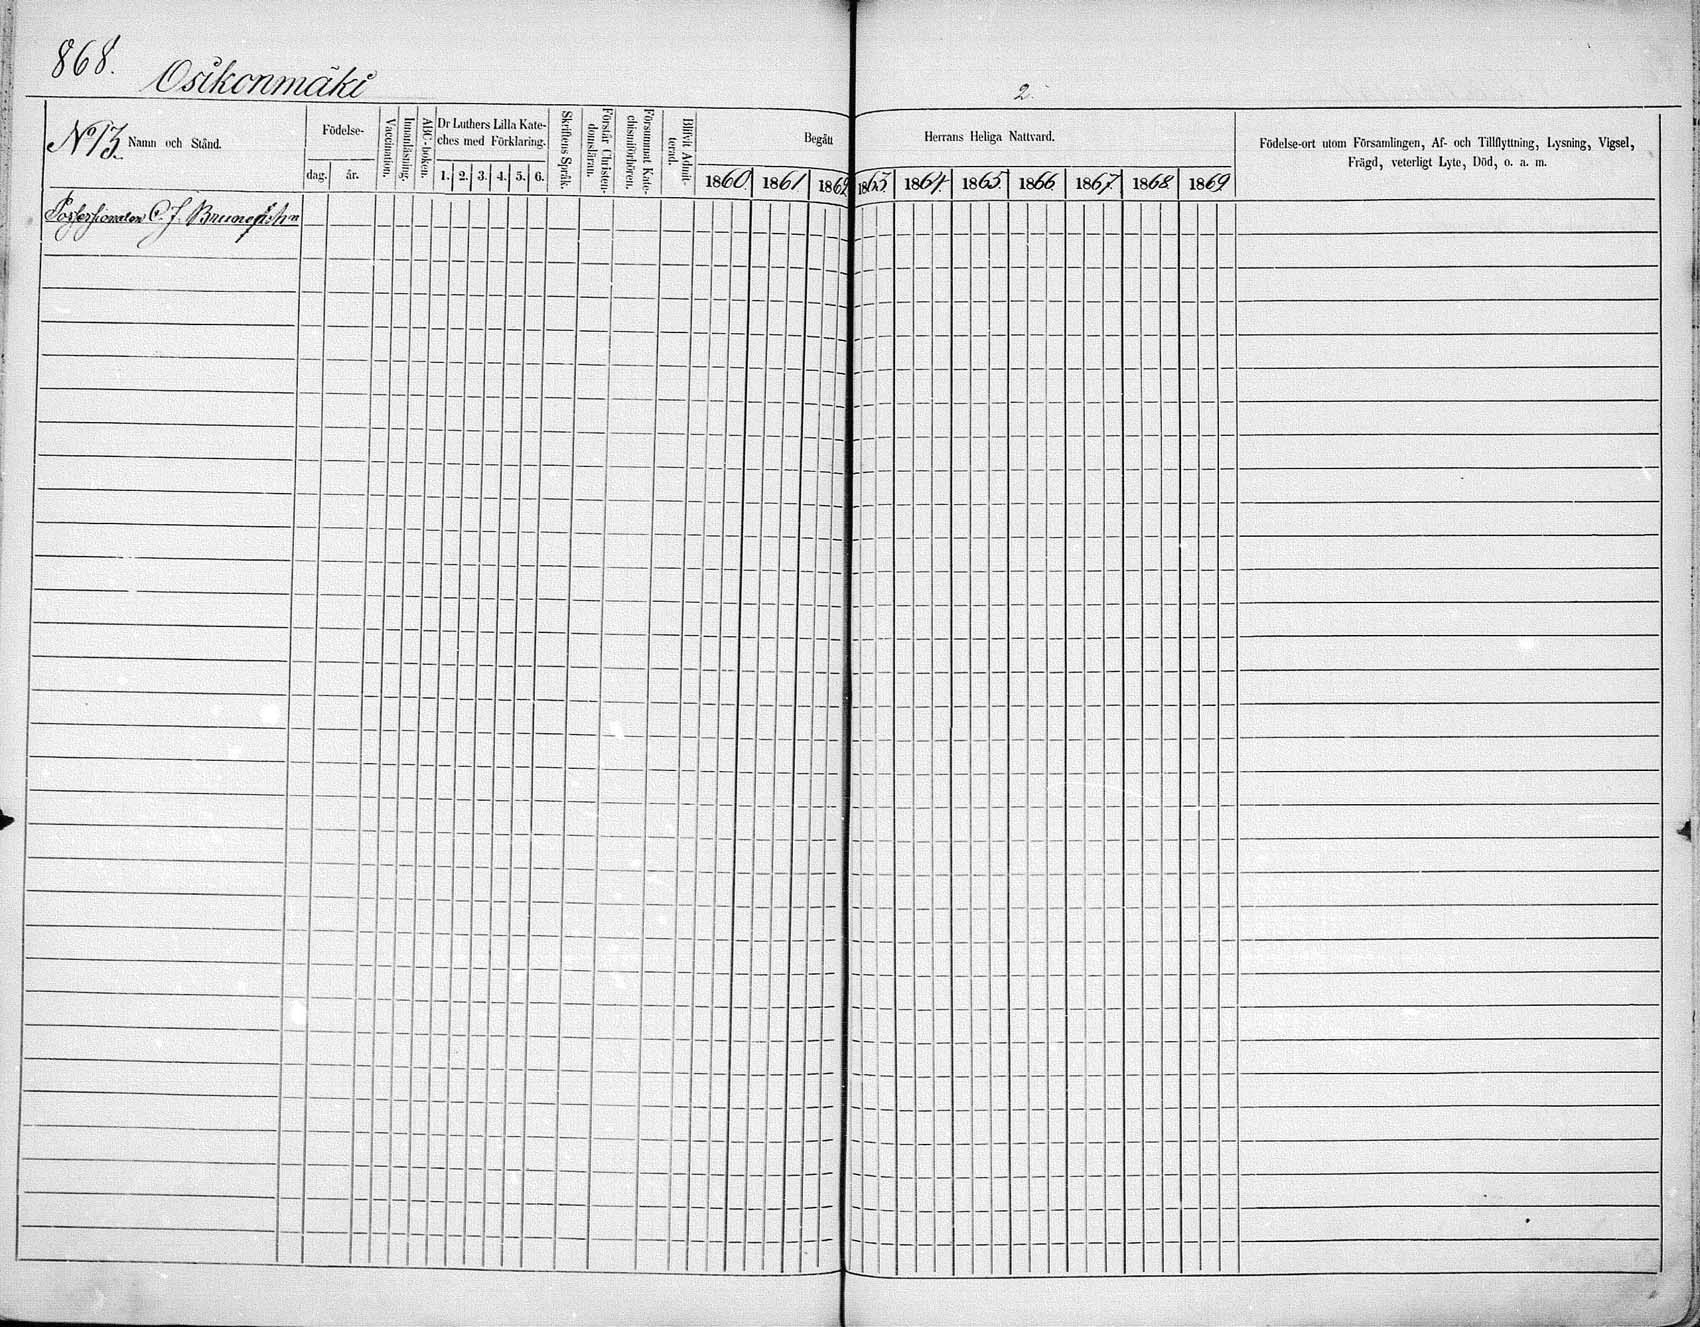 868.
Osikonmäki
2.
No 13.
Namn och Stånd.
Födelse-
dag.
år.
Vaccination.
Innanläsning.
ABC-boken.
Dr Luthers Lilla Kate-
ches med Förklaring.
1. 2. 3. 4. 5. 6.
Skriftens Språk.
Förstår Christen-
domsläran.
Försummat Kate-
chismiförhören.
Blifvit Admit-
terad.
Begått Herrans Heliga Nattvard.
1860 1861 1862 1863 1864 1865 1866 1867 1868 1869
Födelse-ort utom Församlingen, Af- och Tillflyttning, Lysning, Vigsel,
Frägd, veterligt Lyte, Död, o. a. m.
Possessionaten C. J.